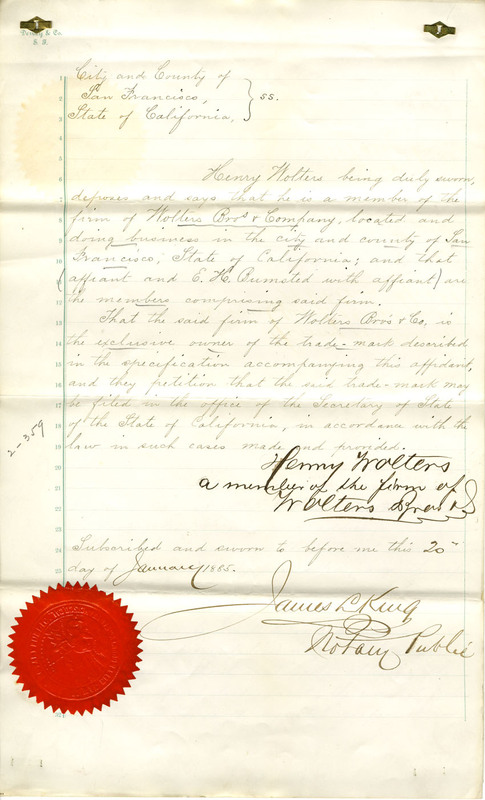 Dewey & Co.
S. F.
City and County of
San Francisco, } ss.
State of California,
Henry Wolters being duly sworn,
deposes and says that he is a member of the
firm of Wolters Bros & Company, located and
doing business in the city and county of San
Francisco, State of California; and that
(affiant and E. H. Bumsted with affiant) are
the members comprising said firm.
That the said firm of Wolters Bros & Co. is
the exclusive owner of the trade-mark described
in the specification accompanying this affidavit,
and they petition that the said trade-mark may
be filed in the office of the Secretary of State
of the State of California, in accordance with the
law in such cases made and provided.
2-359
Henry Wolters
a member of the firm of
Wolters Bros &
Subscribed and sworn to before me this 20"
day of January 1885.
James L King
Notary Public
1
2
3
4
5
6
7
8
9
10
11
12
13
14
15
16
17
18
19
20
21
22
23
24
25